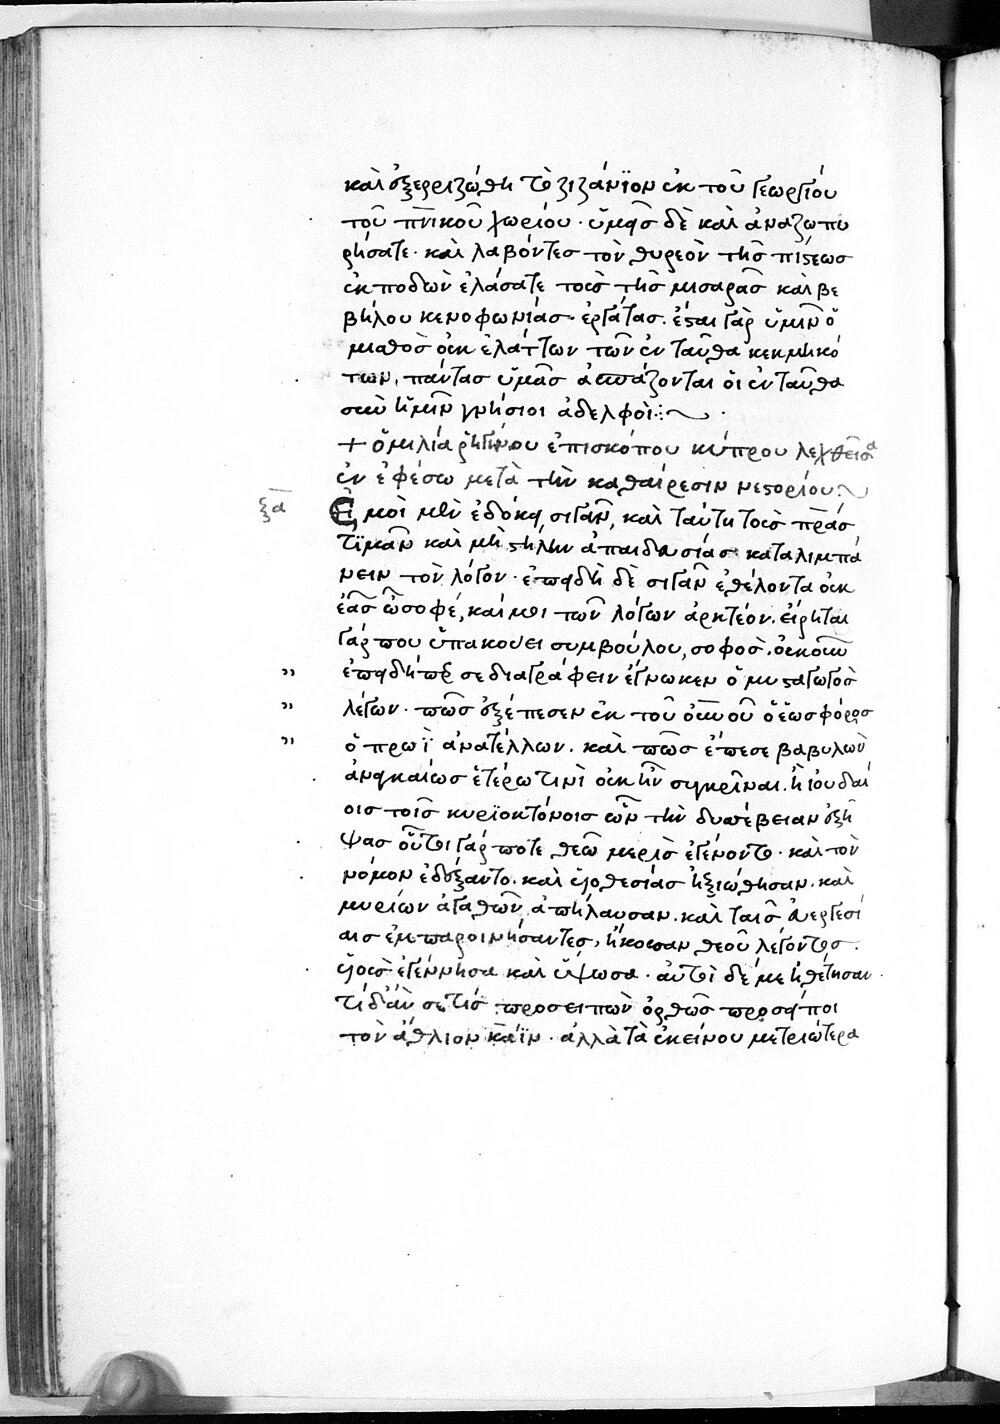 καὶ ἐξερριζώθη τὸ ζιζάνϊον ἐκ τοῦ γεωργίου
τοῦ πνικοῦ χωρίου· ὑμεῖς δὲ καὶ ἀναζωπυ
ρήσατε· καὶ λαβόντες τὸν θυρεὸν τῆς πίστεως
ἐκποδὼν ἐλάσατε τοὺς τῆς μισαρᾶς καὶ βε
βήλου κενοφωνίας ἐργάτας. ἔσται γὰρ ὑμῖν ὁ
μισθὸς οὐκ ἐλάττων τῶν ἐνταῦθα κεκμηκό
των, πάντας ὑμᾶς ἀσπάζονται οἱ ἐνταῦθα
σὺν ἡμῖν γνήσιοι ἀδελφοί:~
+ ὁμιλία ῥηγίνου ἐπισκόπου κύπρου λεχθεῖσα
ἐν ἐφέσω μετὰ τὴν καθαίρεσιν νεστορίου:~
ξα
Ἐμοὶ μὲν ἐδόκει σιγᾶν, καὶ ταύτη τοὺς πρας
τϊμᾶν καὶ μὴ στήλην ἀπαιδευσίας καταλιμπά
νειν τὸν λόγον· ἐπειδὴ δὲ σιγᾶν ἐθέλοντα οὐκ
ἐᾶς ὦ σοφέ, καί μοι τῶν λόγων ἀρκτέον. εἴρηται
γάρ που ὑπακούει συμβούλου, σοφός. οὐκοῦν
" ἐπειδήπερ σε διαγράφειν ἔγνωκεν ὁ μυσταγωγὸς
" λέγων· πῶς ἐξέπεσεν ἐκ τοῦ οὐνοῦ ὁ ἑωσφόρος
" ὁ πρωῒ ἀνατέλλων. καὶ πῶς ἔπεσε βαβυλὼν
ἀναγκαίως ἑτέρω τινὶ οὐκ ἦν συγκρῖναι. ἢ ἰουδαί
οις τοῖς κυρϊοκτόνοις ὧν τὴν δυσσέβειαν ἐζή
ψας οὗτοι γάρ ποτε θεῶ μερὶς ἐγένοντο· καὶ τὸν
νόμον ἐδέξαντο. καὶ υἱοθεσίας ἠξιώθησαν. καὶ
μυρίων ἀγαθῶν ἀπήλαυσαν. καὶ ταῖς εὐεργεσί
αις ἐμπαροινήσαντες, ἤκουσαν θεοῦ λέγοντος.
υἱοὺς ἐγέννησα καὶ ὕψωσα· αὐτοὶ δέ με ἠθέτησαν
τί δ' ἄν σε τίς προσειπὼν ὀρθῶς προσείποι
τὸν ἄθλιον κάϊν· ἀλλὰ τὰ ἐκείνου μετριώτερα